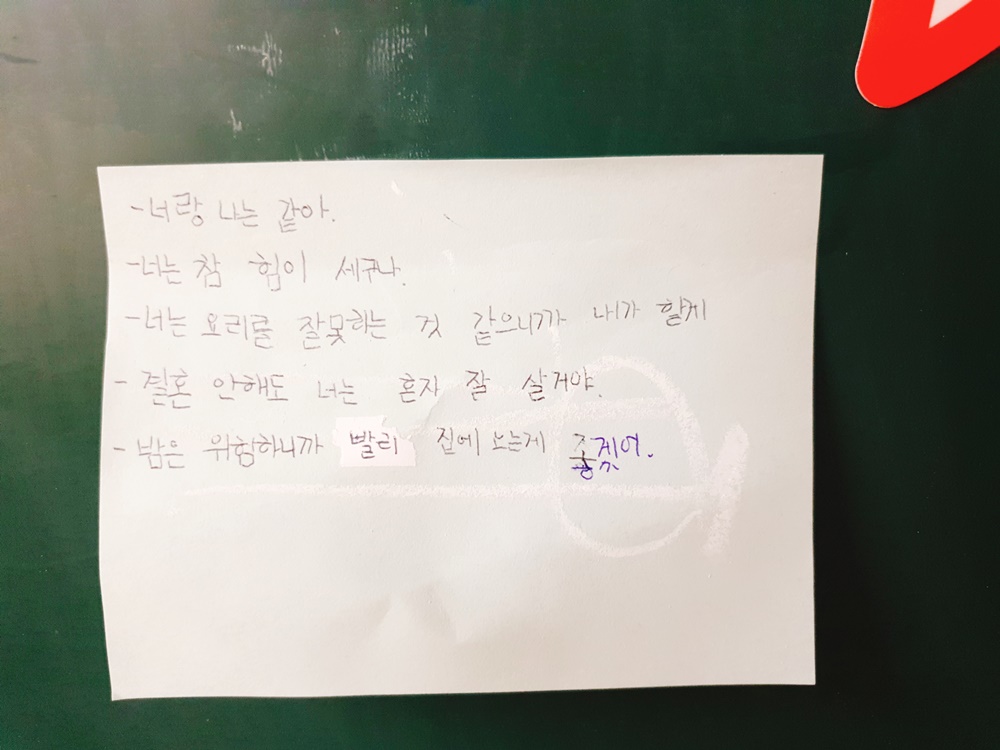 -너랑 나는 같아.
-너는 참 힘이 세구나.
-너는 요리를 잘못하는 것 같으니까 내가 할게
- 결혼 안해도 너는 혼자 잘 살거야.
- 밤은 위험하니까 빨리 집에 오는게 좋겠어.